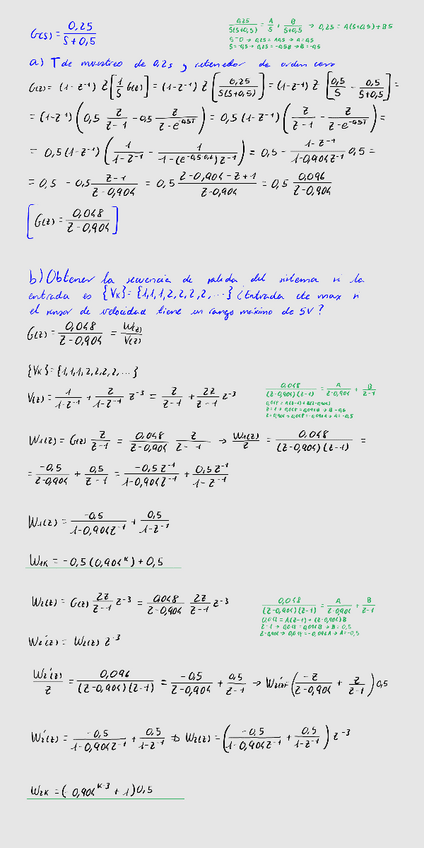 G(s) = 0,25 / (s+0,5)
0,25 / (s(s+0,5)) = A/s + B/(s+0,5) → 0,25 = A(s+0,5) + Bs
s=0 → 0,25 = A0,5 → A=0,5
s=-0,5 → 0,25 = -0,5B → B=-0,5
a) T de muestreo de 0,2s y retenedor de orden cero
G(z) = (1-z^-1) Z[1/s G(s)] = (1-z^-1) Z[0,25 / (s(s+0,5))] = (1-z^-1) Z[0,5/s - 0,5/(s+0,5)] =
= (1-z^-1) (0,5 z/(z-1) - 0,5 z/(z-e^-0,5T)) = 0,5 (1-z^-1) (z/(z-1) - z/(z-e^-0,5T)) =
= 0,5 (1-z^-1) (1/(1-z^-1) - 1/(1-(e^-0,5·0,2)z^-1)) = 0,5 - (1-z^-1)/(1-0,904z^-1) 0,5 =
= 0,5 - 0,5 (z-1)/(z-0,904) = 0,5 (z-0,904-z+1)/(z-0,904) = 0,5 0,096/(z-0,904)
[G(z) = 0,048/(z-0,904)]
b) Obtener la secuencia de salida del sistema si la
entrada es {Vk} = {1,1,1,2,2,2,...} ¿Entrada de max si
el sensor de velocidad tiene un rango máximo de 5V?
G(z) = 0,048/(z-0,904) = W(z)/V(z)
{Vk} = {1,1,1,2,2,2,2,...}
V(z) = 1/(1-z^-1) + 2/(1-z^-1) z^-3 = z/(z-1) + 2z/(z-1) z^-3
0,048/((z-0,904)(z-1)) = A/(z-0,904) + B/(z-1)
W1(z) = G(z) z/(z-1) = 0,048/(z-0,904) z/(z-1) → W1(z)/z = 0,048/((z-0,904)(z-1)) =
= -0,5/(z-0,904) + 0,5/(z-1) = -0,5z^-1/(1-0,904z^-1) + 0,5z^-1/(1-z^-1)
W1(z) = -0,5/(1-0,904z^-1) + 0,5/(1-z^-1)
W1k = -0,5(0,904^k) + 0,5
W2(z) = G(z) 2z/(z-1) z^-3 = 0,048/(z-0,904) 2z/(z-1) z^-3
0,048/((z-0,904)(z-1)) = A/(z-0,904) + B/(z-1)
W2(z) = W2'(z) z^-3
W2'(z)/z = 0,096/((z-0,904)(z-1)) = -0,5/(z-0,904) + 0,5/(z-1) → W2'(z) = (-z/(z-0,904) + z/(z-1)) 0,5
W2'(z) = -0,5/(1-0,904z^-1) + 0,5/(1-z^-1) → W2(z) = (-0,5/(1-0,904z^-1) + 0,5/(1-z^-1)) z^-3
W2k = (-0,904^k-3 + 1) 0,5